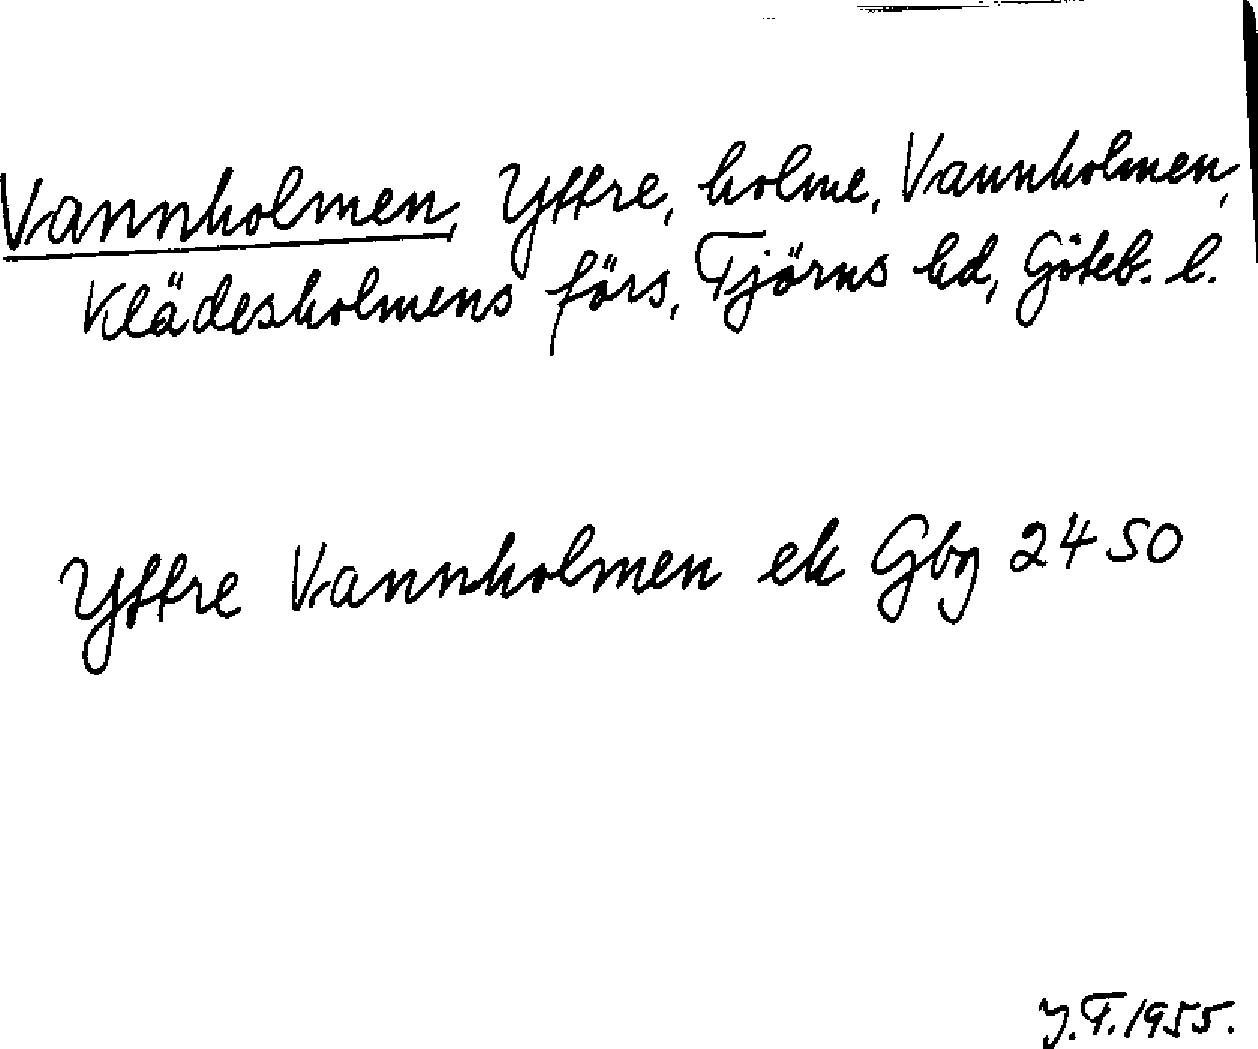 Vannholmen, Yttre, holme, Vannholmen,
Klädesholmens förs, Tjörns hd, Göteb. l.
Yttre Vannholmen ek Gbg 2450
Y.T. 1955.